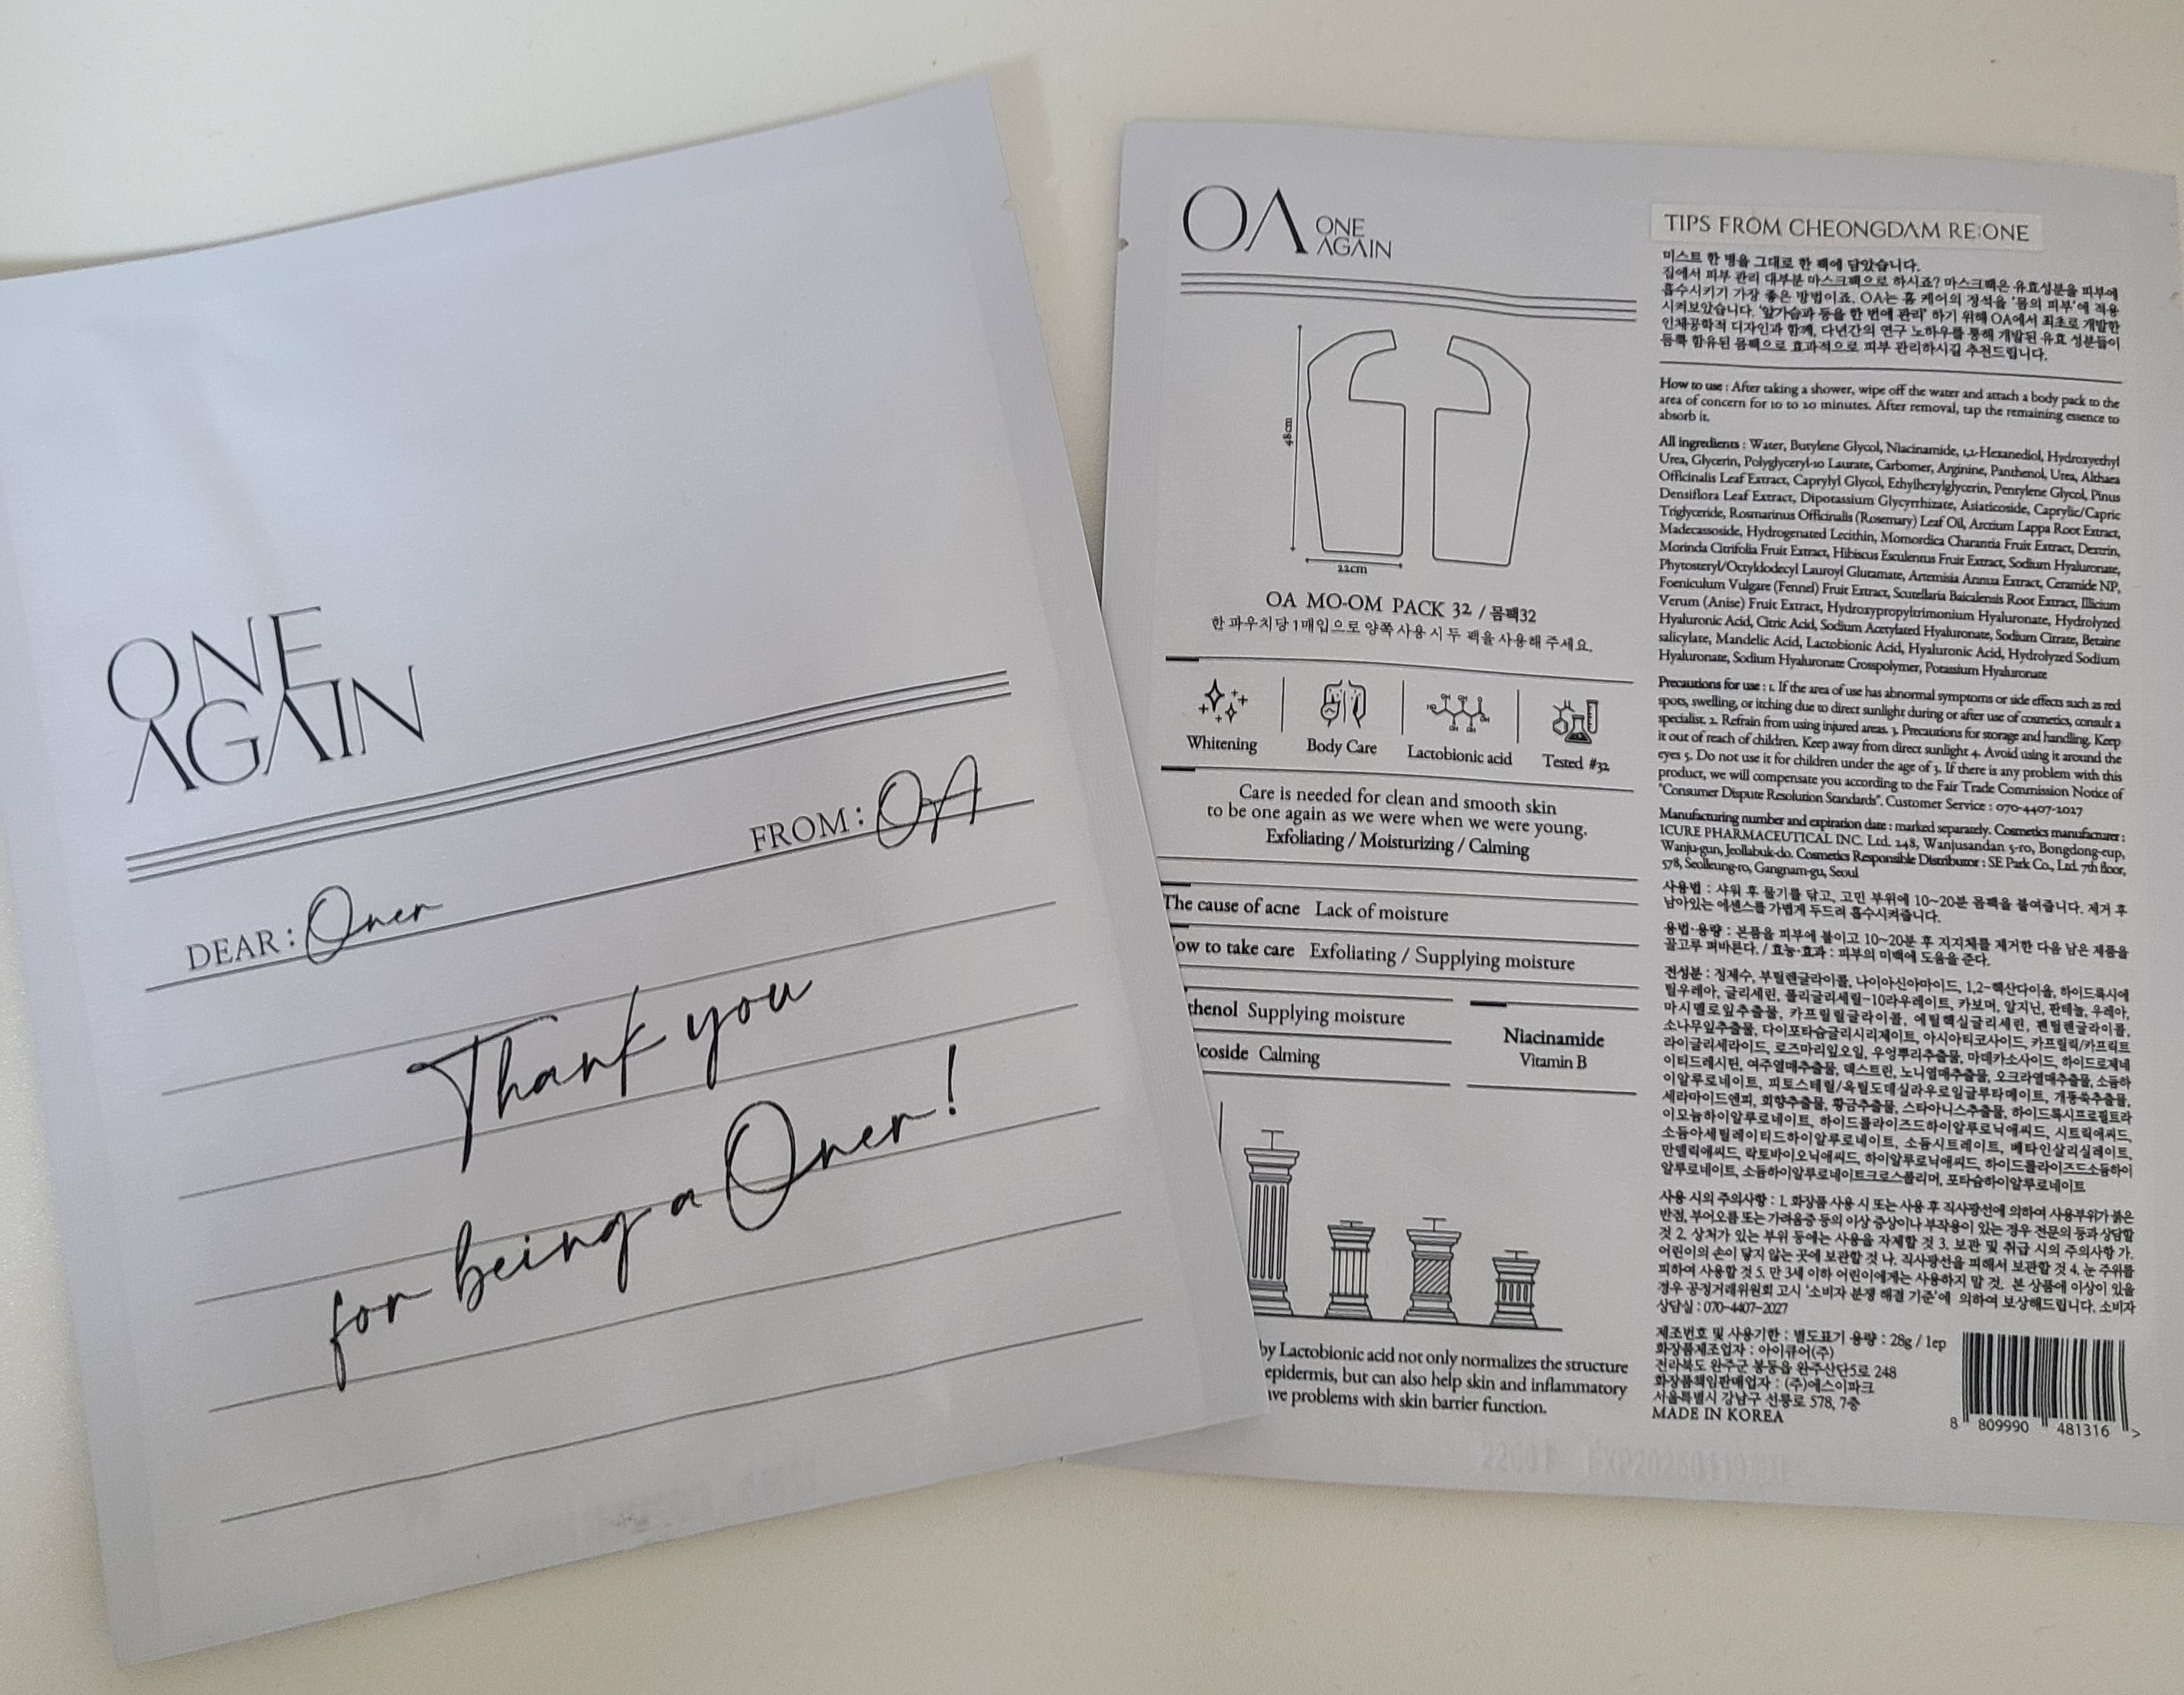 ONE
AGAIN
FROM: OA
DEAR: Oner
Thank you
for being a Oner!
OA ONE
AGAIN
48cm
22cm
OA MO-OM PACK 32 / 몸팩32
한 파우치당 1매입으로 양쪽 사용 시 두 팩을 사용해 주세요.
Whitening
Body Care
Lactobionic acid
Tested #32
Care is needed for clean and smooth skin
to be one again as we were when we were young.
Exfoliating / Moisturizing / Calming
The cause of acne Lack of moisture
ow to take care Exfoliating / Supplying moisture
thenol Supplying moisture
coside Calming
Niacinamide
Vitamin B
by Lactobionic acid not only normalizes the structure
epidermis, but can also help skin and inflammatory
ve problems with skin barrier function.
TIPS FROM CHEONGDAM RE:ONE
미스트 한 병을 그대로 한 팩에 담았습니다.
집에서 피부 관리 대부분 마스크팩으로 하시죠? 마스크팩은 유효성분을 피부에
흡수시키기 가장 좋은 방법이죠. OA는 홈 케어의 정석을 '몸의 피부'에 적용
시켜보았습니다. '앞가슴과 등을 한 번에 관리' 하기 위해 OA에서 최초로 개발한
인체공학적 디자인과 함께, 다년간의 연구 노하우를 통해 개발된 유효 성분들이
듬뿍 함유된 몸팩으로 효과적으로 피부 관리하시길 추천드립니다.
How to use : After taking a shower, wipe off the water and attach a body pack to the
area of concern for 10 to 20 minutes. After removal, tap the remaining essence to
absorb it.
All ingredients : Water, Butylene Glycol, Niacinamide, 1,2-Hexanediol, Hydroxyethyl
Urea, Glycerin, Polyglyceryl-10 Laurate, Carbomer, Arginine, Panthenol, Urea, Althaea
Officinalis Leaf Extract, Caprylyl Glycol, Ethylhexylglycerin, Pentylene Glycol, Pinus
Densiflora Leaf Extract, Dipotassium Glycyrrhizate, Asiaticoside, Caprylic/Capric
Triglyceride, Rosmarinus Officinalis (Rosemary) Leaf Oil, Arctium Lappa Root Extract,
Madecassoside, Hydrogenated Lecithin, Momordica Charantia Fruit Extract, Dextrin,
Morinda Citrifolia Fruit Extract, Hibiscus Esculentus Fruit Extract, Sodium Hyaluronate,
Phytosteryl/Octyldodecyl Lauroyl Glutamate, Artemisia Annua Extract, Ceramide NP,
Foeniculum Vulgare (Fennel) Fruit Extract, Scutellaria Baicalensis Root Extract, Illicium
Verum (Anise) Fruit Extract, Hydroxypropyltrimonium Hyaluronate, Hydrolyzed
Hyaluronic Acid, Citric Acid, Sodium Acetylated Hyaluronate, Sodium Citrate, Betaine
salicylate, Mandelic Acid, Lactobionic Acid, Hyaluronic Acid, Hydrolyzed Sodium
Hyaluronate, Sodium Hyaluronate Crosspolymer, Potassium Hyaluronate
Precautions for use : 1. If the area of use has abnormal symptoms or side effects such as red
spots, swelling, or itching due to direct sunlight during or after use of cosmetics, consult a
specialist. 2. Refrain from using injured areas. 3. Precautions for storage and handling. Keep
it out of reach of children. Keep away from direct sunlight 4. Avoid using it around the
eyes 5. Do not use it for children under the age of 3. If there is any problem with this
product, we will compensate you according to the Fair Trade Commission Notice of
"Consumer Dispute Resolution Standards". Customer Service : 070-4407-2027
Manufacturing number and expiration date : marked separately. Cosmetics manufacturer :
ICURE PHARMACEUTICAL INC. Ltd. 248, Wanjusandan 5-ro, Bongdong-eup,
Wanju-gun, Jeollabuk-do. Cosmetics Responsible Distributor : SE Park Co., Ltd. 7th floor,
578, Seolleung-ro, Gangnam-gu, Seoul
사용법 : 샤워 후 물기를 닦고, 고민 부위에 10~20분 몸팩을 붙여줍니다. 제거 후
남아있는 에센스를 가볍게 두드려 흡수시켜줍니다.
용법·용량 : 본품을 피부에 붙이고 10~20분 후 지지체를 제거한 다음 남은 제품을
골고루 펴바른다. / 효능·효과 : 피부의 미백에 도움을 준다.
전성분 : 정제수, 부틸렌글라이콜, 나이아신아마이드, 1,2-헥산다이올, 하이드록시에
틸우레아, 글리세린, 폴리글리세릴-10라우레이트, 카보머, 알지닌, 판테놀, 우레아,
마시멜로잎추출물, 카프릴릴글라이콜, 에틸헥실글리세린, 펜틸렌글라이콜,
소나무잎추출물, 다이포타슘글리시리제이트, 아시아티코사이드, 카프릴릭/카프릭트
라이글리세라이드, 로즈마리잎오일, 우엉뿌리추출물, 마데카소사이드, 하이드로제네
이티드레시틴, 여주열매추출물, 덱스트린, 노니열매추출물, 오크라열매추출물, 소듐하
이알루로네이트, 피토스테릴/옥틸도데실라우로일글루타메이트, 개똥쑥추출물,
세라마이드엔피, 회향추출물, 황금추출물, 스타아니스추출물, 하이드록시프로필트라
이모늄하이알루로네이트, 하이드롤라이즈드하이알루로닉애씨드, 시트릭애씨드,
소듐아세틸레이티드하이알루로네이트, 소듐시트레이트, 베타인살리실레이트,
만델릭애씨드, 락토바이오닉애씨드, 하이알루로닉애씨드, 하이드롤라이즈드소듐하이
알루로네이트, 소듐하이알루로네이트크로스폴리머, 포타슘하이알루로네이트
사용 시의 주의사항 : 1. 화장품 사용 시 또는 사용 후 직사광선에 의하여 사용부위가 붉은
반점, 부어오름 또는 가려움증 등의 이상 증상이나 부작용이 있는 경우 전문의 등과 상담할
것 2. 상처가 있는 부위 등에는 사용을 자제할 것 3. 보관 및 취급 시의 주의사항 가.
어린이의 손이 닿지 않는 곳에 보관할 것 나. 직사광선을 피해서 보관할 것 4. 눈 주위를
피하여 사용할 것 5. 만 3세 이하 어린이에게는 사용하지 말 것. 본 상품에 이상이 있을
경우 공정거래위원회 고시 '소비자 분쟁 해결 기준'에 의하여 보상해드립니다. 소비자
상담실 : 070-4407-2027
제조번호 및 사용기한 : 별도표기 용량 : 28g / 1ep
화장품제조업자 : 아이큐어(주)
전라북도 완주군 봉동읍 완주산단5로 248
화장품책임판매업자 : (주)에스이파크
서울특별시 강남구 선릉로 578, 7층
MADE IN KOREA
8 809990 481316 >